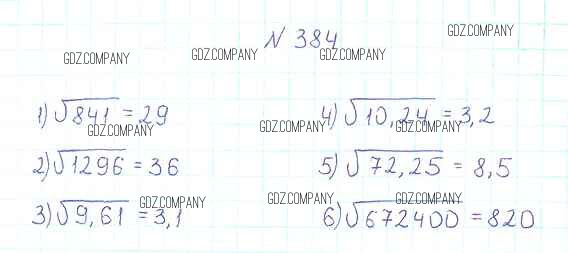 № 384
GDZ.COMPANY GDZ.COMPANY GDZ.COMPANY GDZ.COMPANY
1) √841 = 29
4) √10,24 = 3,2
GDZ.COMPANY GDZ.COMPANY GDZ.COMPANY
2) √1296 = 36
5) √72,25 = 8,5
3) √9,61 = 3,1
6) √672400 = 820
GDZ.COMPANY GDZ.COMPANY GDZ.COMPANY